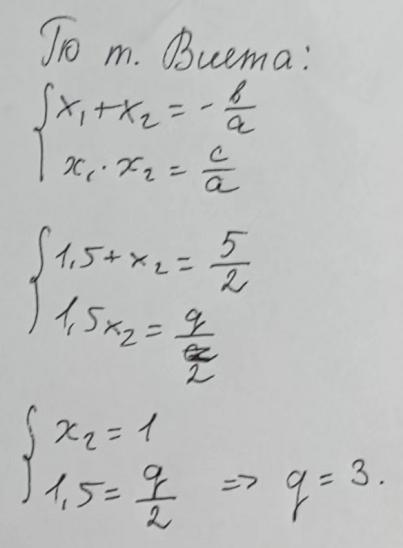 По т. Виета:
x₁ + x₂ = - b/a
x₁ · x₂ = c/a
1,5 + x₂ = 5/2
1,5x₂ = q/2
x₂ = 1
1,5 = q/2 => q = 3.